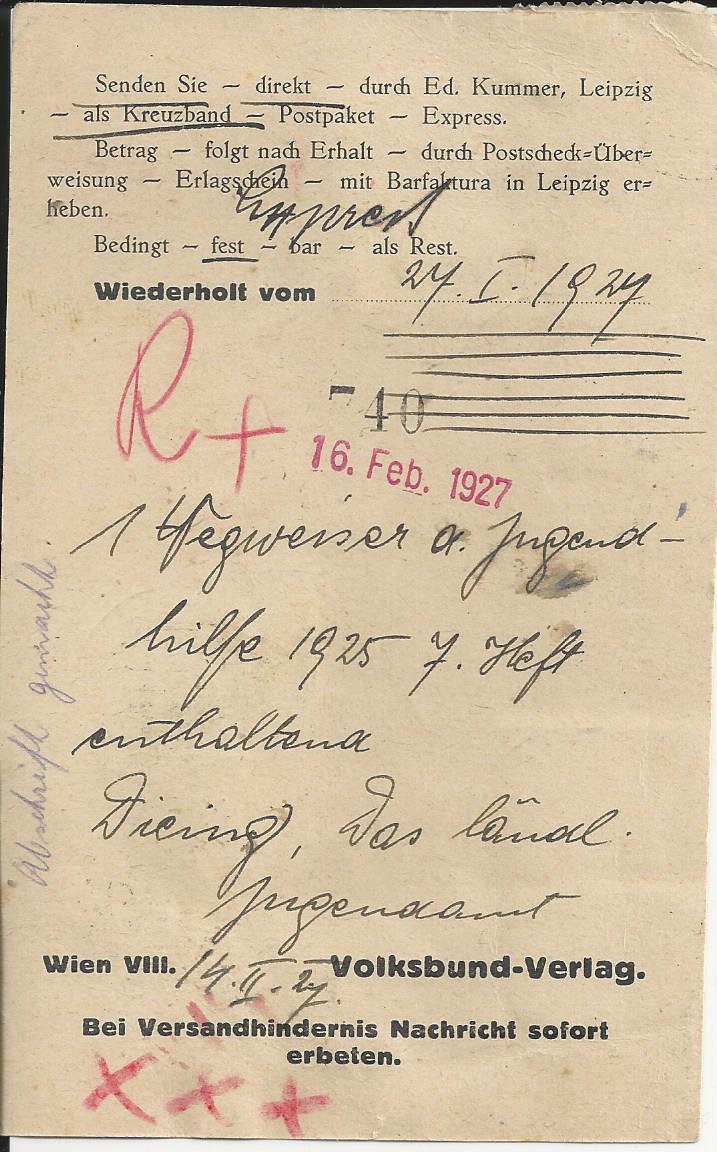 Senden Sie — direkt — durch Ed. Kummer, Leipzig
— als Kreuzband — Postpaket — Express.
Betrag — folgt nach Erhalt — durch Postscheck=Über=
weisung — Erlagschein — mit Barfaktura in Leipzig er=
heben.
Bedingt — fest — bar — als Rest.
Wiederholt vom 27. I. 1927
R +
740
16. Feb. 1927
1 Wegweiser d. Jugend-
hilfe 1925 7. Heft
enthaltend
Das ländl.
Jugendamt
Abschrift gemacht.
Wien VIII. 14. II. 27. Volksbund-Verlag.
Bei Versandhindernis Nachricht sofort
erbeten.